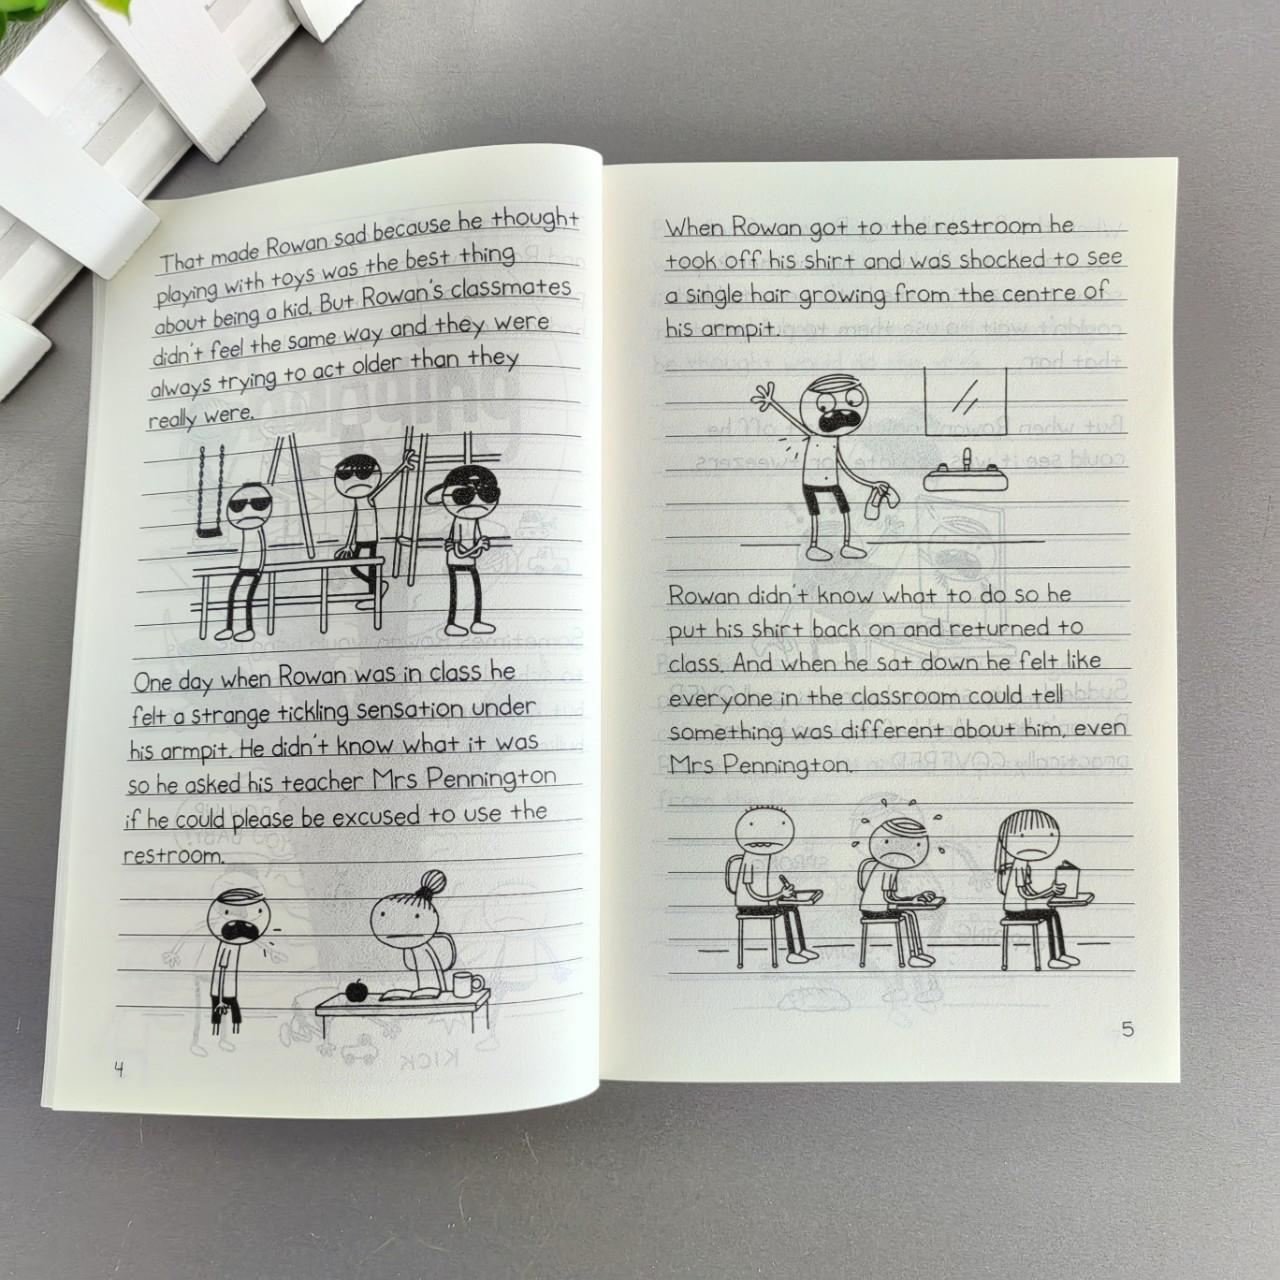 That made Rowan sad because he thought
playing with toys was the best thing
about being a kid. But Rowan's classmates
didn't feel the same way and they were
always trying to act older than they
really were.
One day when Rowan was in class he
felt a strange tickling sensation under
his armpit. He didn't know what it was
so he asked his teacher Mrs Pennington
if he could please be excused to use the
restroom.
4
When Rowan got to the restroom he
took off his shirt and was shocked to see
a single hair growing from the centre of
his armpit.
Rowan didn't know what to do so he
put his shirt back on and returned to
class. And when he sat down he felt like
everyone in the classroom could tell
something was different about him, even
Mrs Pennington.
5